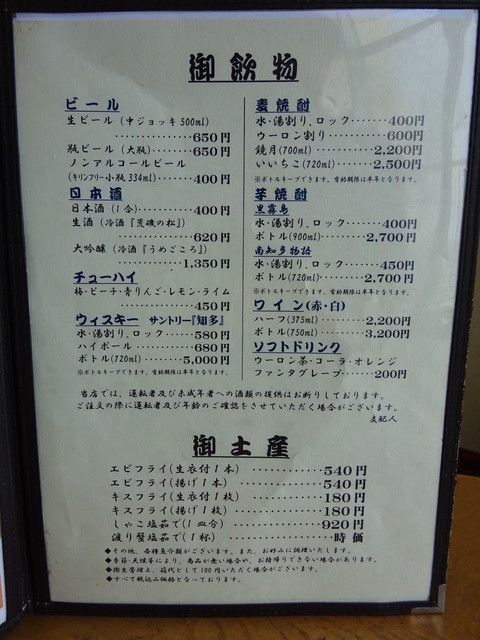 御飲物
ビール
生ビール (中ジョッキ500ml)
……………650円
瓶ビール (大瓶)………650円
ノンアルコールビール
(キリンフリー小瓶334ml)……400円
日本酒
日本酒 (1合)…………400円
生酒 (冷酒『荒磯の松』)
620円
大吟醸 (冷酒『うめごころ』)
………1,350円
チューハイ
梅・ピーチ・青りんご・レモン・ライム
……………450円
ウィスキー サントリー『知多』
水・湯割り、ロック……580円
ハイボール……………680円
ボトル(720ml)………5,000円
※ボトルキープできます。有効期限は半年となります。
麦焼酎
水・湯割り、ロック……400円
ウーロン割り…………600円
鏡月(700ml)…………2,200円
いいちこ(720ml)……2,500円
※ボトルキープできます。有効期限は半年となります。
芋焼酎
黒霧島
水・湯割り、ロック……400円
ボトル(900ml)………2,700円
南知多物語
水・湯割り、ロック……450円
ボトル(720ml)………2,700円
※ボトルキープできます。有効期限は半年となります。
ワイン(赤・白)
ハーフ(375ml)………2,200円
ボトル(750ml)………3,200円
ソフトドリンク
ウーロン茶・コーラ・オレンジ
ファンタグレープ………200円
当店では、運転者及び未成年者への酒類の提供はお断りしております。
ご注文の際に運転者及び年齢のご確認をさせていただく場合がございます。
支配人
御土産
エビフライ(生衣付1本)…………540円
エビフライ(揚げ1本)……………540円
キスフライ(生衣付1枚)…………180円
キスフライ(揚げ1枚)……………180円
しゃこ塩茹で(1皿分)……………920円
渡り蟹塩茹で(1杯)………………時価
◆その他、各種魚介類がございます。また、お好みに調理いたします。
◆季節・天候等により、商品が無い場合や、お持帰りできない場合があります。
◆衛生管理上、箱代として100円いただく場合がございます。
◆すべて税込み価格となっております。